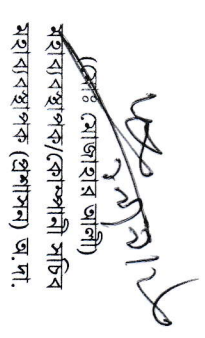 (মোঃ মোজাহার আলী)
মহাব্যবস্থাপক/কোম্পানী সচিব
মহাব্যবস্থাপক (প্রশাসন) অ.দা.